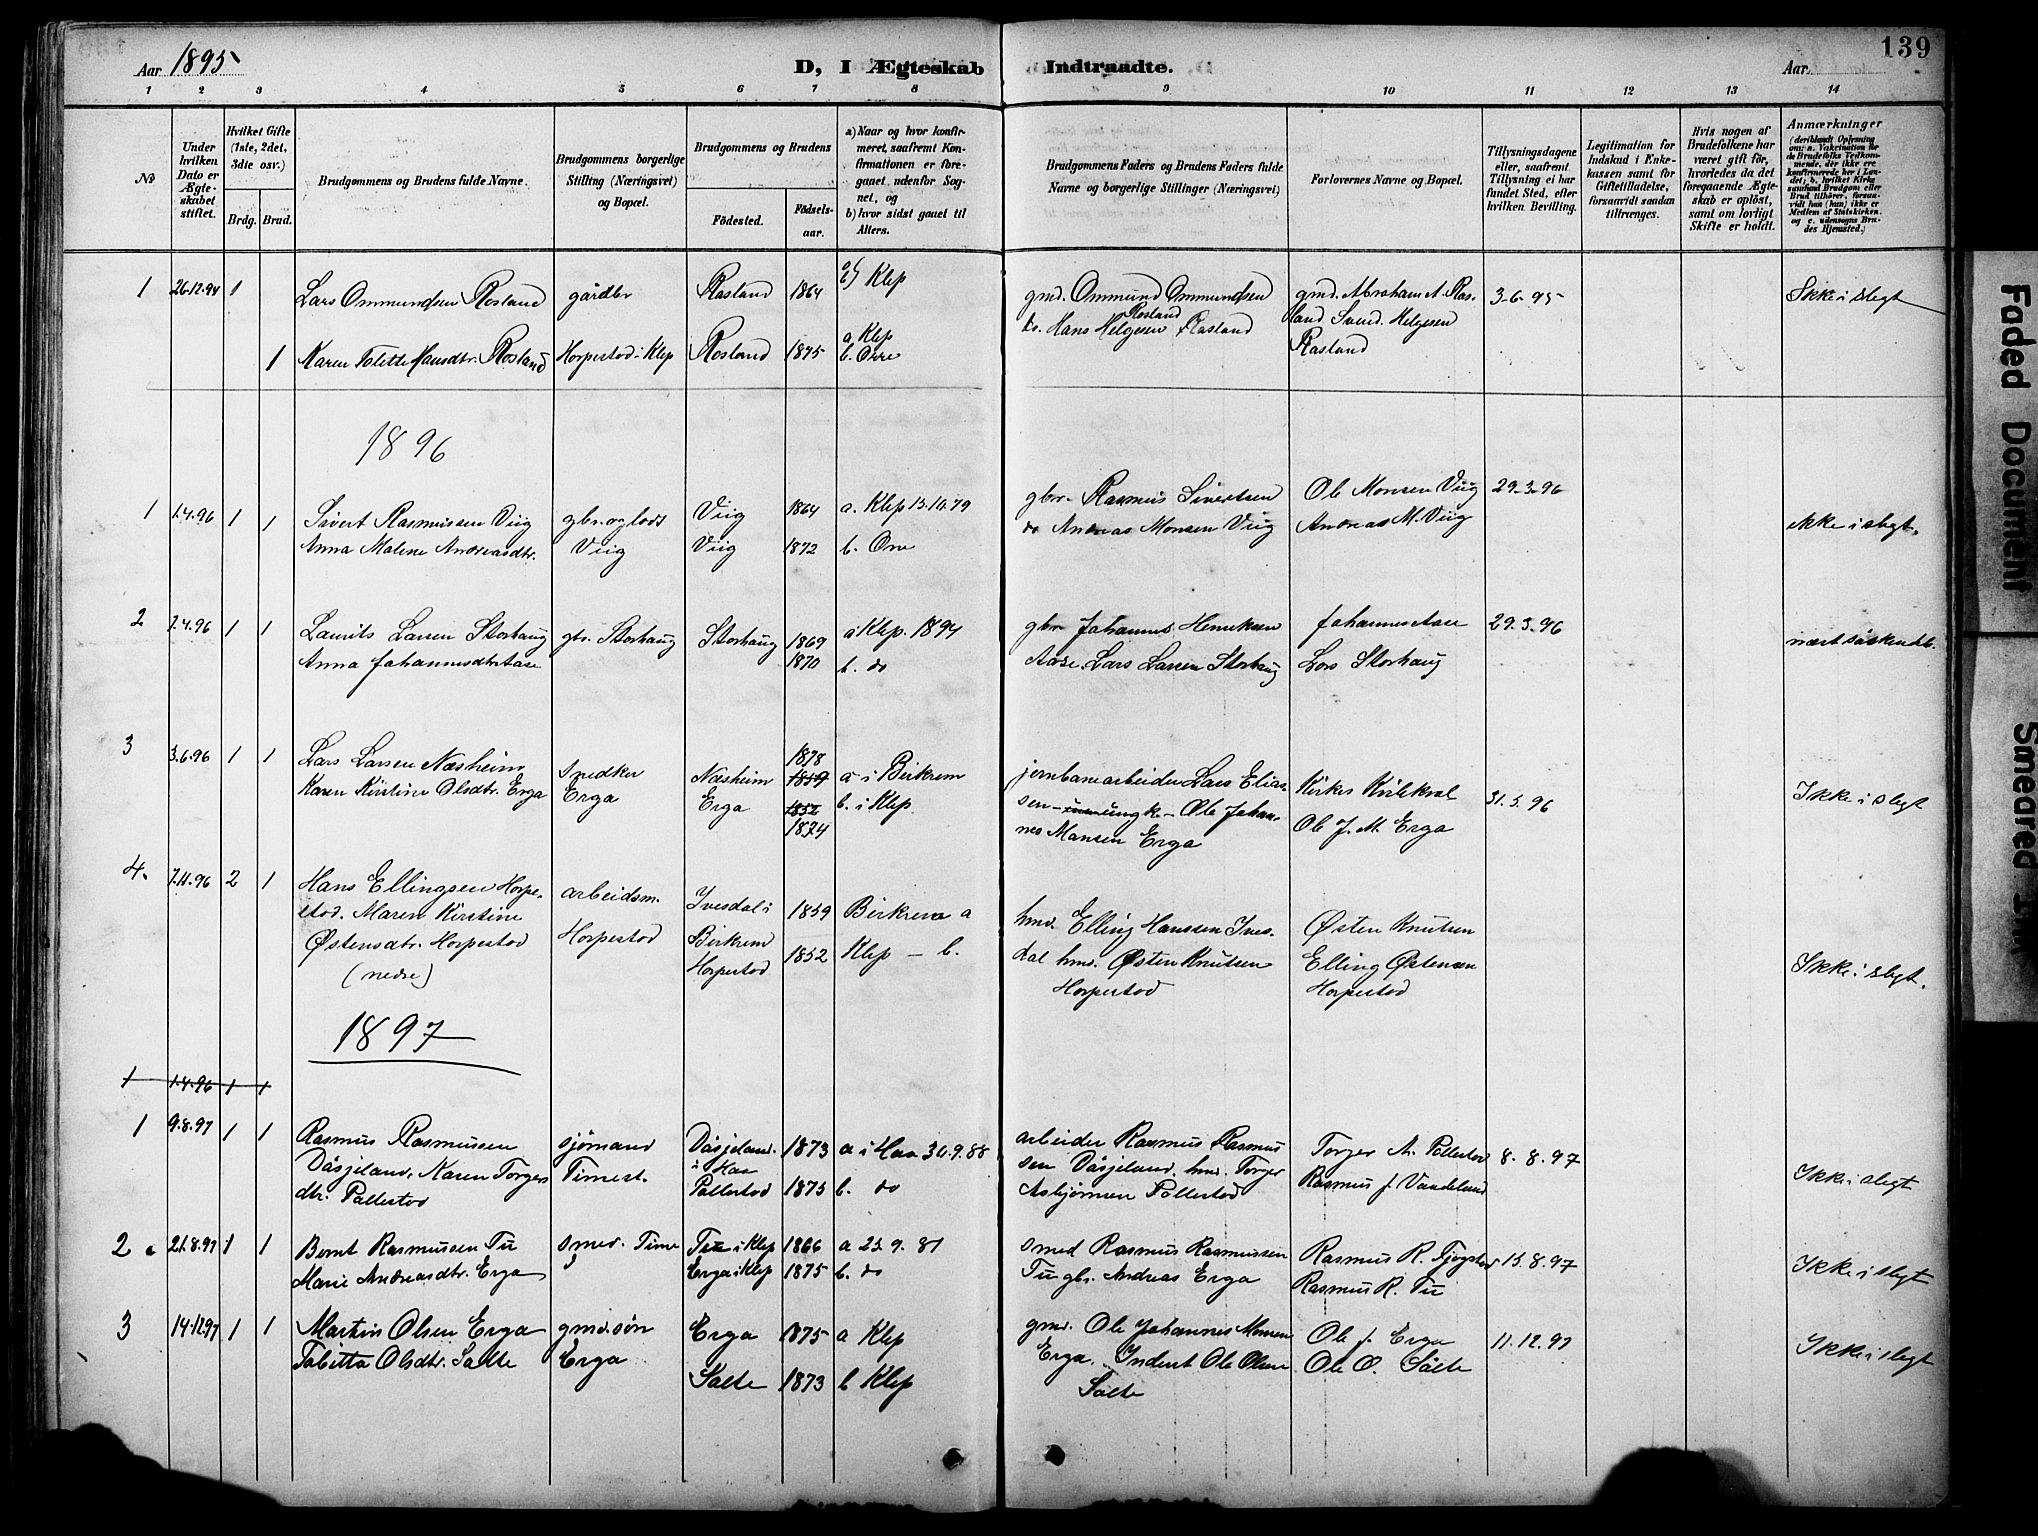 139
Aar 1895
D, I Ægteskab Indtraadte.
Aar
1 2 3 4 5 6 7 8 9 10 11 12 13 14
No
Under hvilken Dato er Ægteskabet stiftet.
Hvilket Gifte (1ste, 2det, 3die osv.)
Brdg. Brud.
Brudgommens og Brudens fulde Navne.
Brudgommens borgerlige Stilling (Næringsvei) og Bopæl.
Brudgommens og Brudens
Födested.
Födselsaar.
a) Naar og hvor konfirmeret, saafremt Konfirmationen er foregaaet udenfor Sognet, og
b) hvor sidst gaaet til Alters.
Brudgommens Faders og Brudens Faders fulde Navne og borgerlige Stillinger (Næringsvei)
Forlovernes Navne og Bopæl.
Tillysningsdagene eller, saafremt Tillysning ei har fundet Sted, efter hvilken Bevilling.
Legitimation for Indskud i Enkekassen samt for Giftetilladelse, forsaavidt saadan tiltrænges.
Hvis nogen af Brudefolkene har været gift för, hvorledes da det foregaaende Ægteskab er oplöst, samt om lovligt Skifte er holdt.
Anmærkninger
(deriblandt Oplysning om: a. Vakcination for de Brudefolks Vedkommende, der ikke ere konfirmerede her i Landet; b. hvilket Kirkesamfund Brudgom eller Brud tilhører, forsaavidt han (hun) ikke er Medlem af Statskirken. og c. udensogns Brudes Hjemsted.)
1 26.12.94 1 Lars Ommundsen Rosland gårdbr Rosland 1864 a) Klep gmd. Ommund Ommundsen Rosland gmd. Abraham A. Ros- 3-6-95 Ikke i slegt
do. Hans Helgesen Rosland land Svend Helgesen
1 Karen Tolette Hansdtr. Rosland Horpestod i Klep Rosland 1875 a. Klep Rosland
b. Orre
1896
1 1.4.96 1 1 Sivert Rasmussen Viig gbr. og lods Viig 1864 a. Klep 15.10.79 gbr. Rasmus Sivertsen Ole Monsen Viig 29.3.96
Anna Malene Andreasdtr. Viig Viig 1872 b. Orre do Andreas Monsen Viig Andreas M. Viig ikke i slegt.
2 7.4.96 1 1 Laurits Larsen Storhaug gbr. Storhaug Storhaug 1869 a Klep. 1894 gbr Johannes Henriksen Johannes Aase 29.3.96
Anna Johannesdtr Aase 1870 b. do Aase. Lars Larsen Storhaug Lars Storhaug
3 3.6.96 1 1 Lars Larsen Næsheim Snedker Næsheim 1878 1859 a i Birkrem jernbanearbeider Lars Elias- 31.5.96
Karen Kirstine Olsdtr. Erga Erga Erga 1852 1874 b. i Klep. sen - ungk - Ole Johan- Ikke i slegt
nes Monsen Erga Ole J. M. Erga
4. 7.11.96 2 1 Hans Ellingsen Horpe- arbeidsm. Ivesdal i 1859 Birkrem a hmd. Elling Hanssen Ives- Østen Knutsen
stod. Maren Kirstine Horpestod Birkrem dal hmd. Østen Knutsen Elling Østensen
Østensdtr. Horpestod Horpestod 1852 Klep - b. Horpestod Horpestod Ikke i slegt.
(nedre)
1897
1 1.4.96 1 1
1 9.8.97 1 1 Rasmus Rasmussen sjømand Dåsjeland 1873 a i Haa 30.9.88 arbeider Rasmus Rasmus- Torger A. Pollestod 8.8.97
Dåsjeland. Karen Torgers Timest. i Haa sen Dåsjeland. hmd. Torger Rasmus J. Vandelund Ikke i slegt
dtr. Pollestod Pollestod 1875 b. do Asbjørnsen Pollestod
2 21.8.97 1 1 Bernt Rasmussen Tu smed. Time Tu i Klep 1866 a 25.9.81 smed Rasmus Rasmussen 15.8.97
Marie Andreasdtr. Erga Erga i Klep 1875 b. do Tu gbr. Andreas Erga Rasmus R. Tu Ikke i slegt
3 14.12.97 1 1 Martin Olsen Erga gmd. søn Erga 1875 a Klep gmd. Ole Johannes Monsen Ole J. Erga 11.12.97
Tobitta Olsdtr. Salte Erga Salte 1873 b Klep Erga. Inderst Ole Olsen Ole O. Salte Ikke i slegt
Salte
Faded Document
Smeared Ink